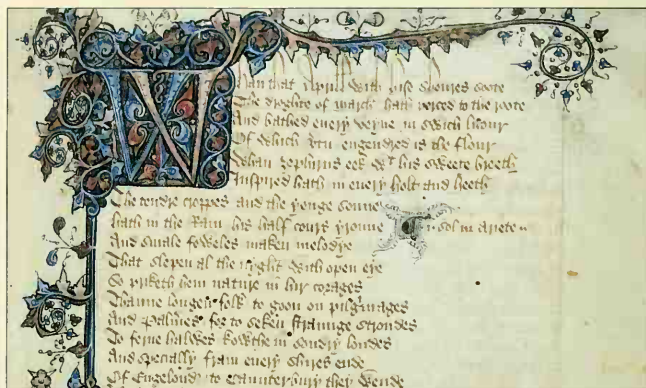 Whan that Aprill with hise shoures soote
The droghte of march / hath perced to the roote
And bathed every veyne in swich licour
Of which vertu engendred is the flour
Whan zephirus eek wt his sweete breeth
Inspired hath in euery holt and heeth
The tendre croppes / and the yonge sonne
hath in the Ram his half cours yronne
.i. sol in ariete
And smale foweles maken melodye
That slepen al the nyght with open eye
So priketh hem nature in hir corages
Thanne longen folk to goon on pilgrimages
And Palmeres for to seken straunge strondes
To ferne halwes kowthe in sondry londes
And specially / from euery shires ende
Of Engelond to Caunterbury they wende